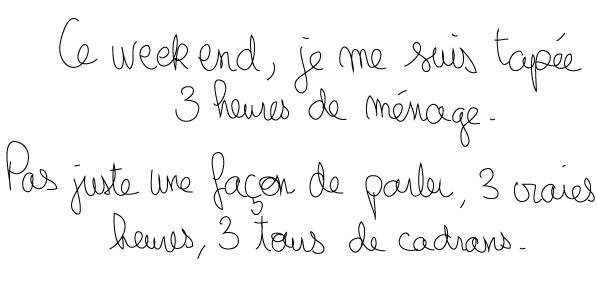 Ce weekend, je me suis tapée
3 heures de ménage.
Pas juste une façon de parler, 3 vraies
heures, 3 tours de cadrans.